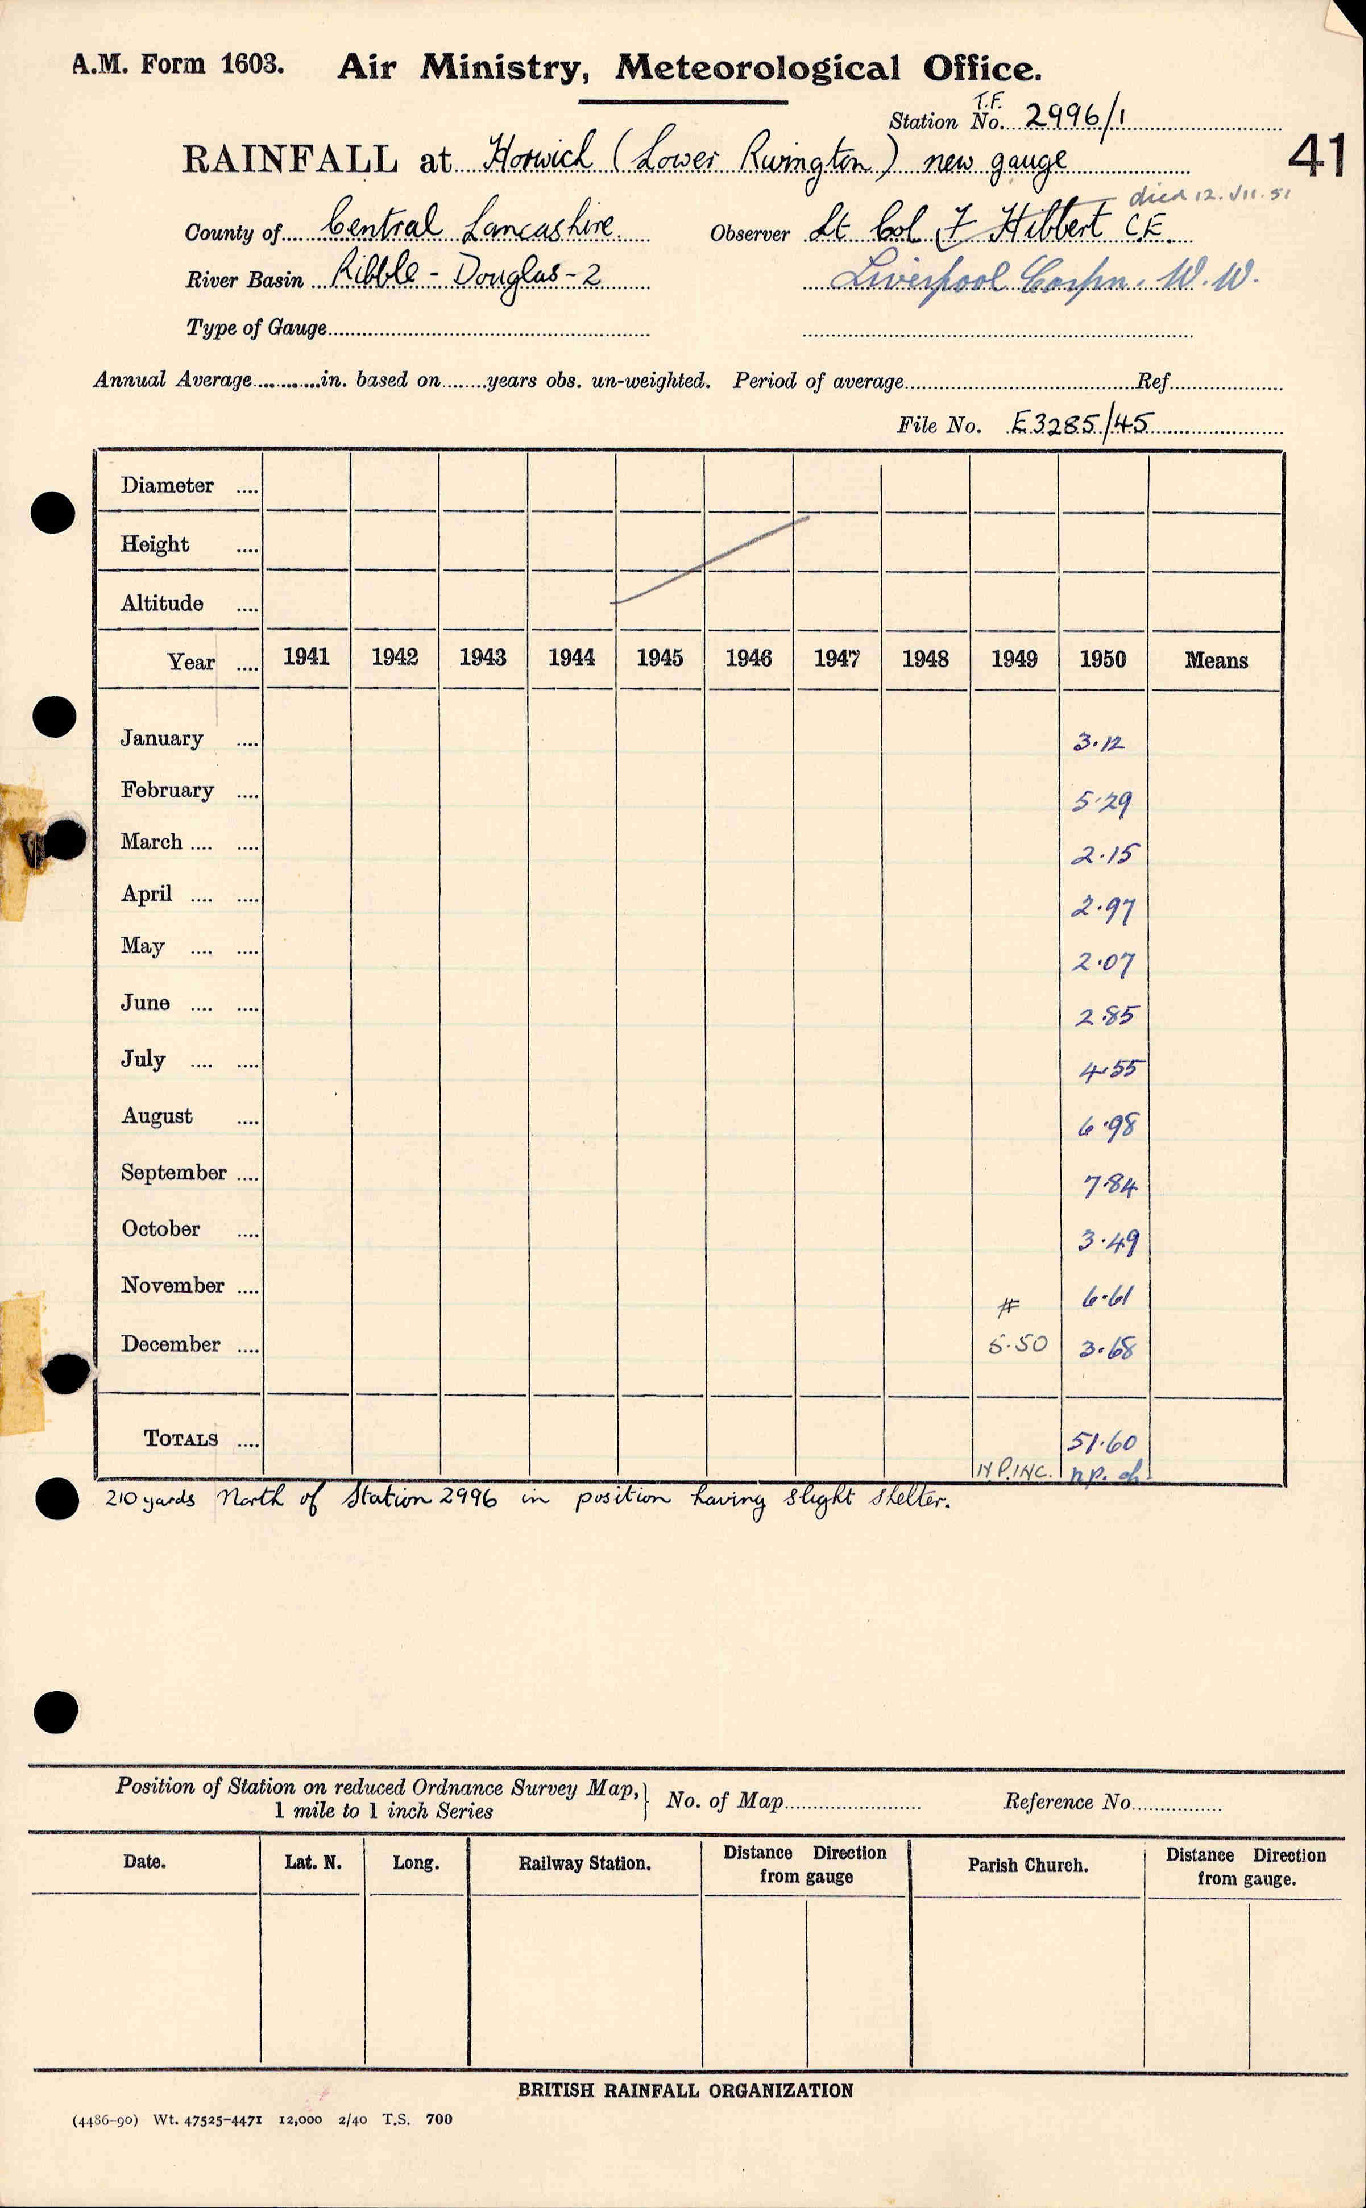 A.M. Form 1603. Air Ministry, Meteorological Office.
T.F.
Station No. 2996/1
41
RAINFALL at Horwich (Lower Rivington) new gauge
died 12.VII.51
County of Central Lancashire Observer Lt Col F Hibbert C.E.
River Basin Ribble - Douglas - 2 Liverpool Corpn. W.W.
Type of Gauge
Annual Average in. based on years obs. un-weighted. Period of average Ref
File No. E3285/45
Diameter
Height
Altitude
Year 1941 1942 1943 1944 1945 1946 1947 1948 1949 1950 Means
January 3.12
February 5.29
March 2.15
April 2.97
May 2.07
June 2.85
July 4.55
August 6.98
September 7.84
October 3.49
November # 6.61
December 5.50 3.68
TOTALS 51.60
N.P.INC. n.p.
210 yards North of Station 2996 in position having slight shelter.
Position of Station on reduced Ordnance Survey Map, } No. of Map Reference No
1 mile to 1 inch Series
Date. Lat. N. Long. Railway Station. Distance Direction from gauge Parish Church. Distance Direction from gauge.
BRITISH RAINFALL ORGANIZATION
(4486-90) Wt. 47525-4471 12,000 2/40 T.S. 700